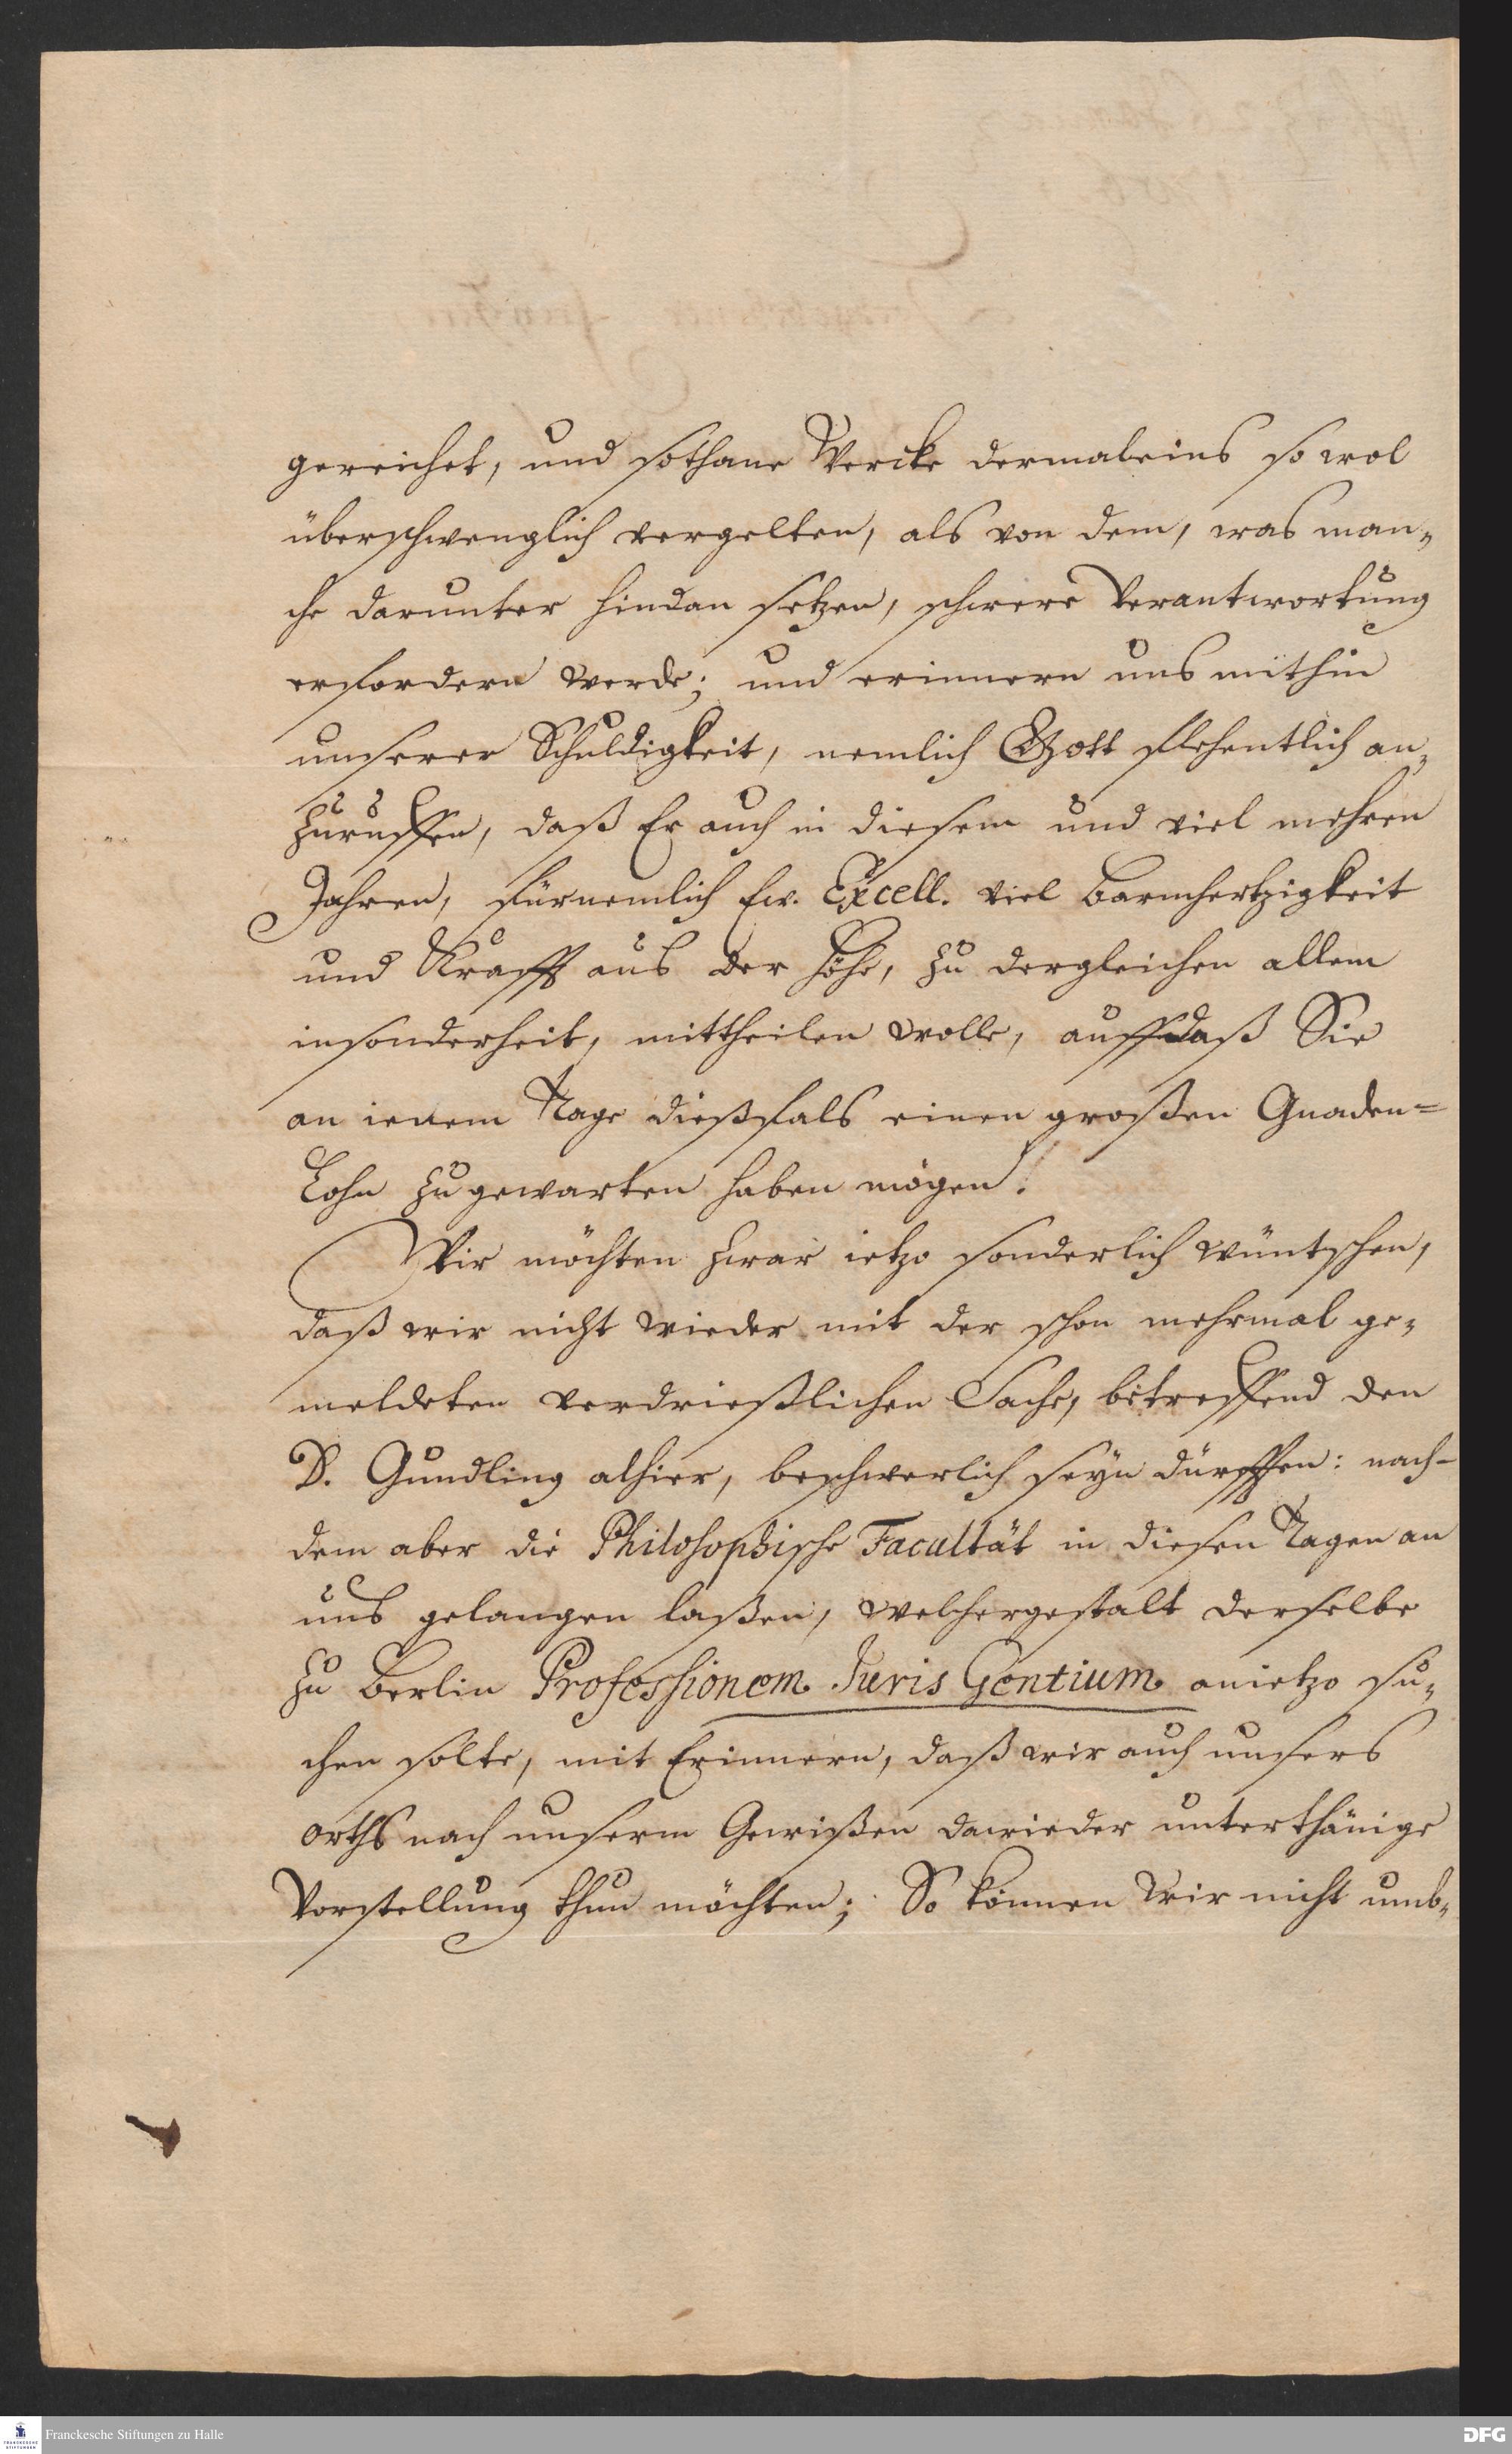 gereichet, und sothane Wercke dermaleins so wol
überschwenglich vergelten, als von dem, was man„
che darunter hindan setzen, schwere Verantwortung
erfordern werde; und erinnern uns mithin
unserer Schuldigkeit, nemlich Gott flehentlich an„
zuruffen, daß Er auch in diesem und viel mehren
Jahren, fürnemlich Ew. Excell. viel Barmhertzigkeit
und Krafft aus der Höhe, zu dergleichen allem
insonderheit, mittheilen wolle, auff daß Sie
an ienem Tage dießfals einen großen Gnaden=
Lohn zugewarten haben mögen.
Wir möchten zwar ietzo sonderlich wüntschen,
daß wir nicht wieder mit der schon mehrmal ge„
meldeten verdrießlichen Sache, betreffend den
D. Gundling alhier, beschwerlich seyn dürfften: nach-
dem aber die Philosophische Facultät in diesen Tagen an
uns gelangen laßen, welchergestalt derselbe
zu Berlin Professionem Juris Gentium anietzo su„
chen solte, mit Erinnern, daß wir auch unsers
orths nach unserm Gewißen dawieder unterthänige
Vorstellung thun möchten; So können wir nicht umb„
Franckesche Stiftungen zu Halle
DFG